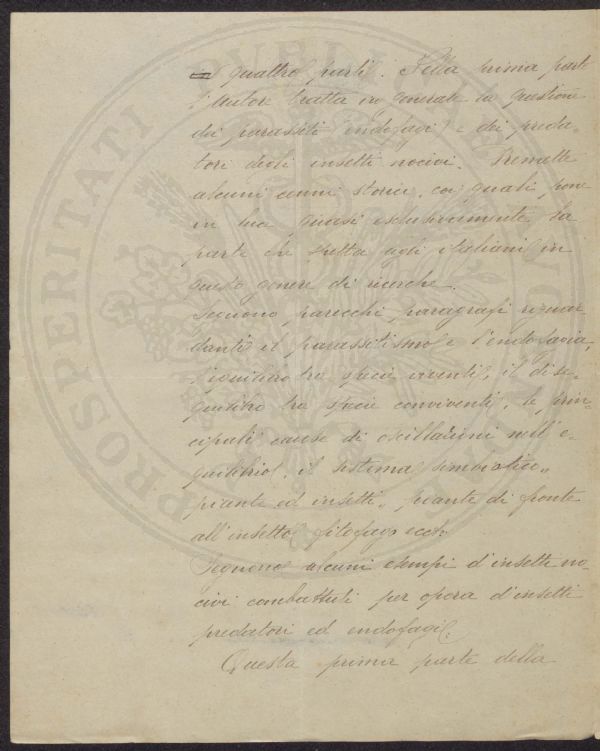 in quattro parti. Nella prima parte
l'Autore tratta in generale la questione
dei parassiti endofagi e dei preda-
tori degli insetti nocivi. Premette
alcuni cenni storici, coi quali pone
in luce quasi esclusivamente la
parte che spetta agli italiani in
questo genere di ricerche.
Seguono parecchi paragrafi riguar-
danti il parassitismo e l'endofagia,
l'equilibrio tra specie viventi, il dise-
quilibro tra specie conviventi, le prin-
cipali cause di oscillazioni nell'e-
quilibrio, il sistema simbiotico
piante ed insetti, piante di fronte
all'insetto fitofago ecc.
Seguono alcuni esempi d'insetti no-
civi combattuti per opera d'insetti
predatori ed endofagi.
Questa prima parte della
PROSPERITATI PUBLICAE